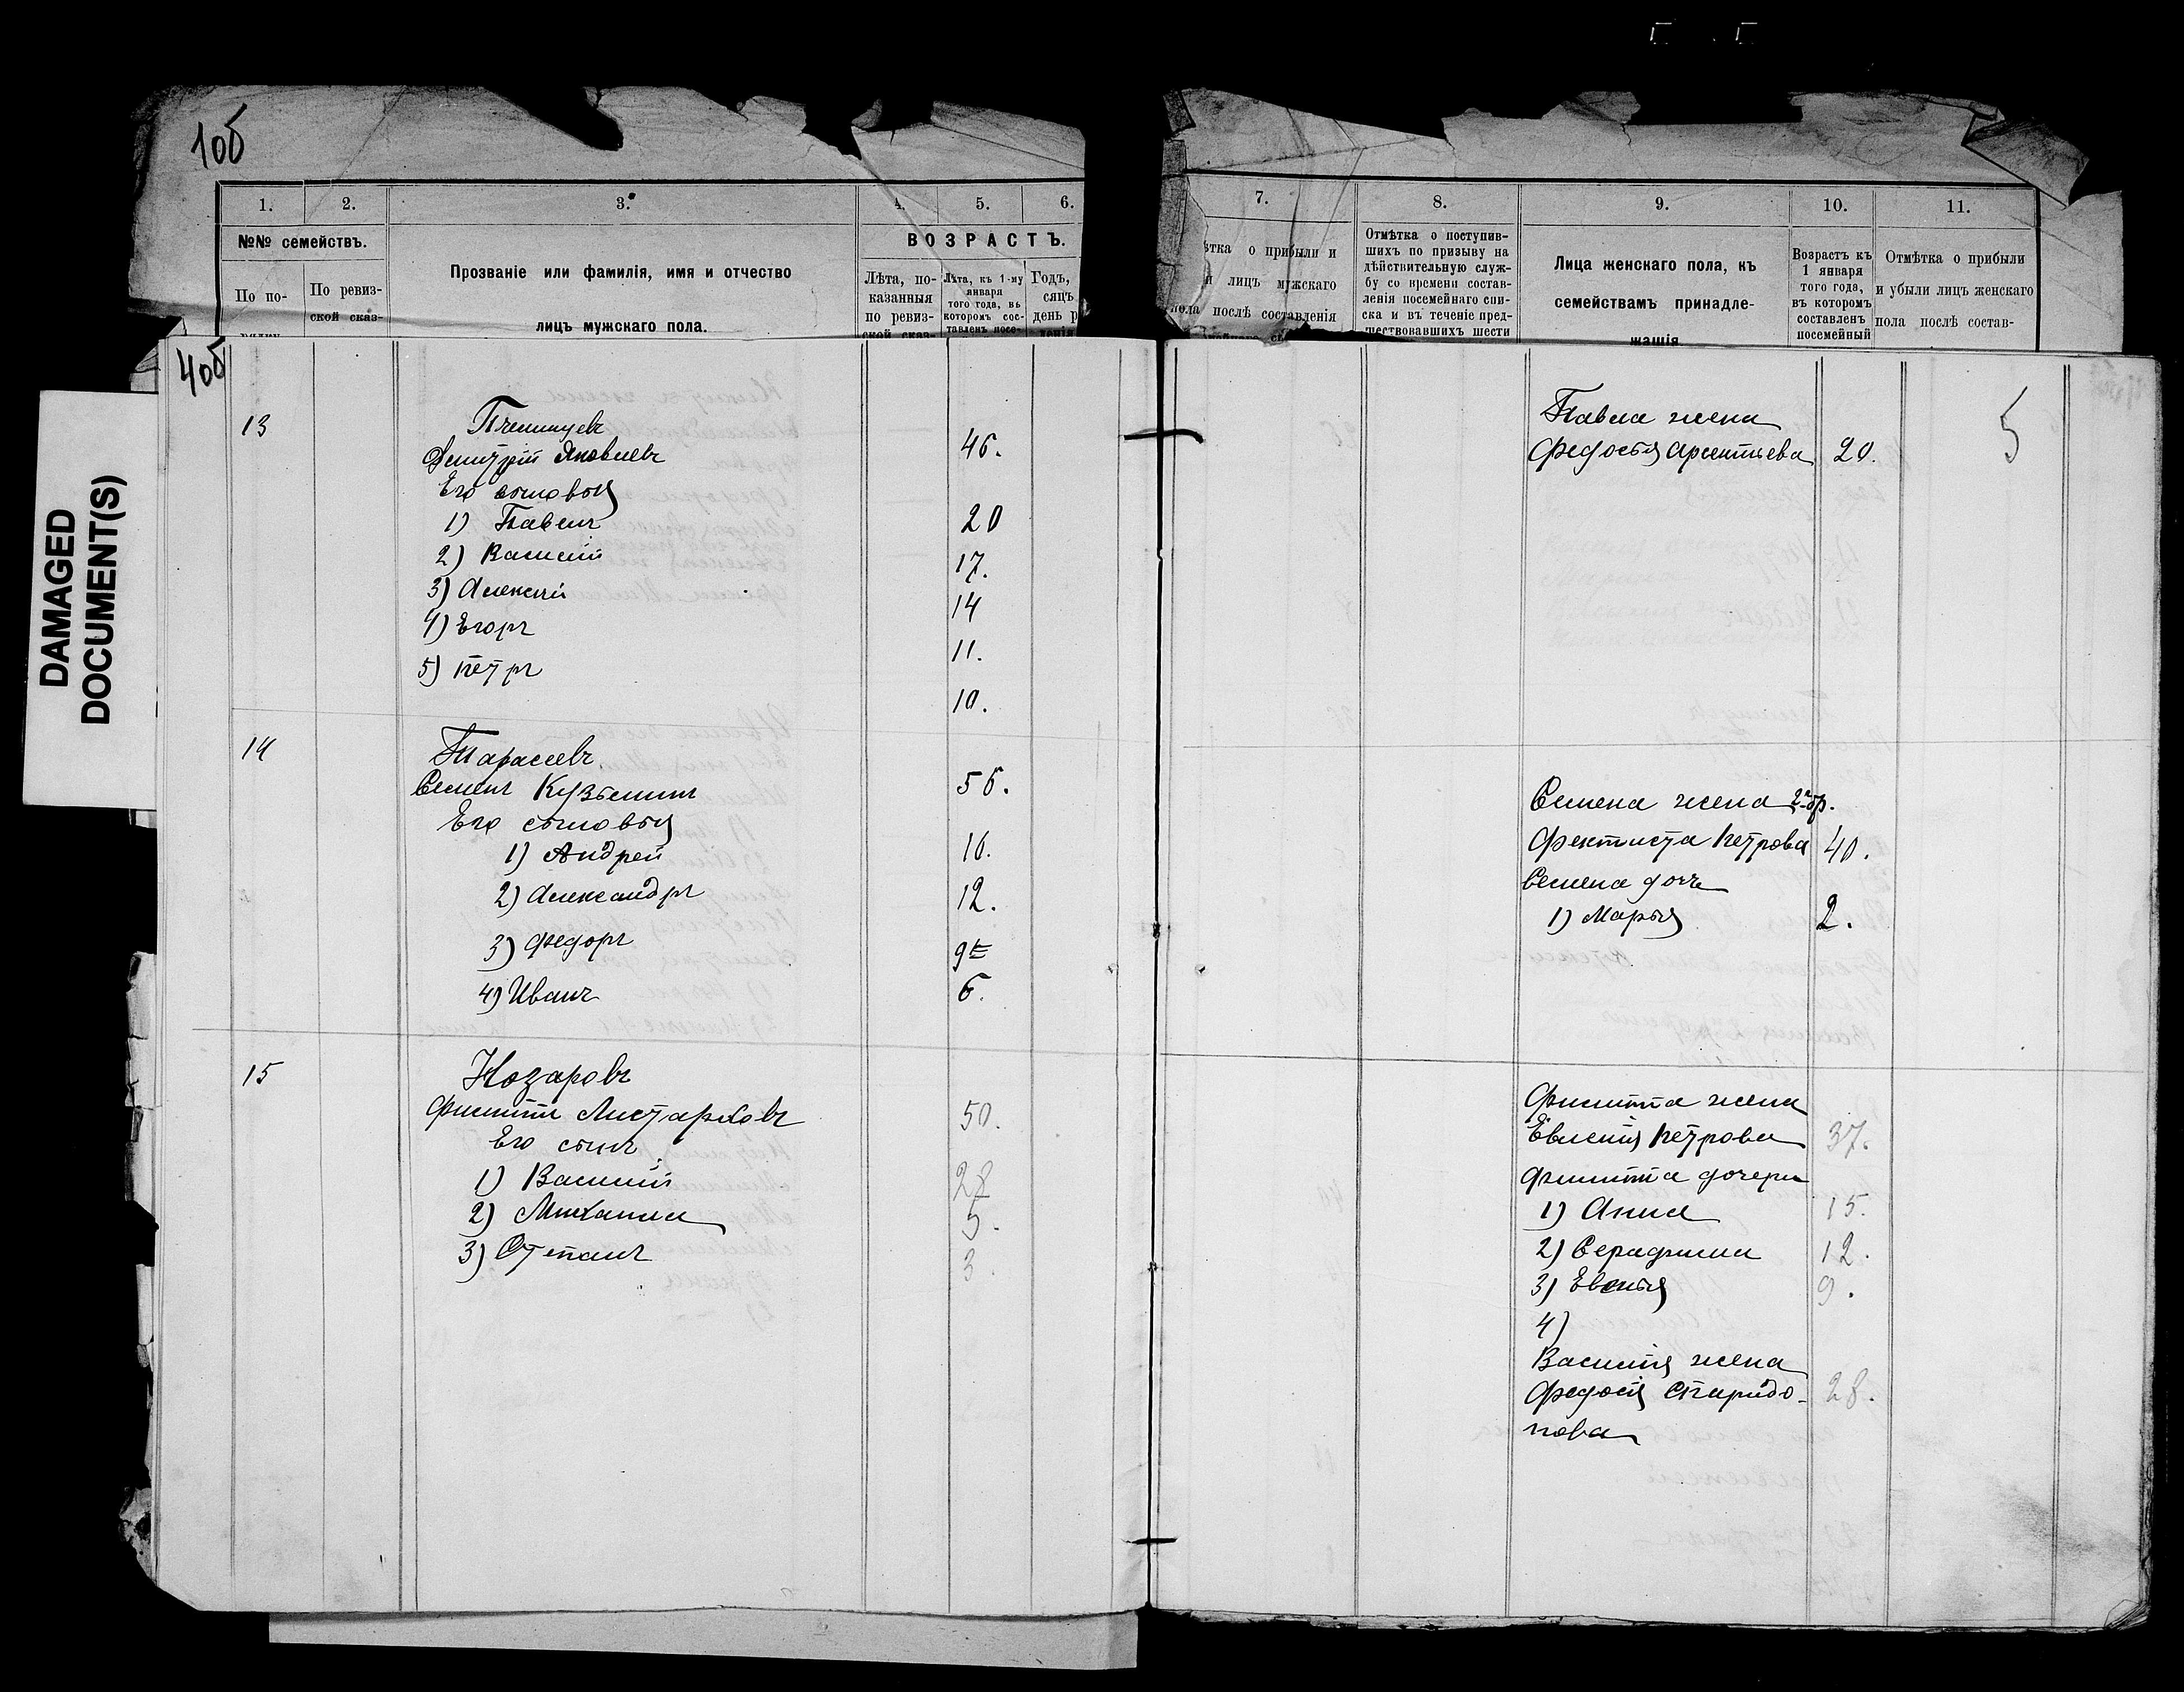 10б
1. 2. 3. 4. 5. 6.
№№ семействъ.
По по-
По ревиз-
ской сказ-
Прозваніе или фамилія, имя и отчество
лицъ мужскаго пола.
ВОЗРАСТЪ.
Лѣта, по-
казанныя
по ревиз-
ской сказ-
Лѣта, къ 1-му
января
того года, въ
которомъ сос-
тавленъ посе-
Годъ,
сяцъ
день р
денія
7. 8. 9. 10. 11.
ѣтка о прибыли и
и лицъ мужскаго
пола послѣ составленія
Отмѣтка о поступив-
шихъ по призыву на
дѣйствительную служ-
бу со времени состав-
ленія посемейнаго спи-
ска и въ теченіе пред-
шествовавшихъ шести
Лица женскаго пола, къ
семействамъ принадле-
жащія
Возрастъ къ
1 января
того года,
въ которомъ
составленъ
посемейный
Отмѣтка о прибыли
и убыли лицъ женскаго
пола послѣ состав-
DAMAGED
DOCUMENT(S)
4об
13
Дмитрій Яковлевъ 46.
Его сыновья
1) Павелъ 20
2) Василій 17.
3) Алексѣй 14
4) Егоръ 11.
5) Петръ 10.
14 Тарасовъ
Семенъ Кузьминъ 56.
Его сыновья
1) Андрей 16.
2) Александръ 12.
3) Федоръ 9
4) Иванъ 6.
15 Нозаровъ
Филиппъ Листарховъ 50.
Его сынъ
1) Василій 28
2) Михаила 5.
3) Степанъ 3.
5
Павла жена
Федосья Арсентьева 20.
Семена жена 2 бр.
Фектиста Петрова 40.
Семена дочь
1) Марья 2.
Филиппа жена
Евгенія Петрова 37.
Филиппа дочери
1) Анна 15.
2) Серафима 12.
3) Евдокья 9.
4)
Василія жена
Федосія Спиридо-
нова 28.